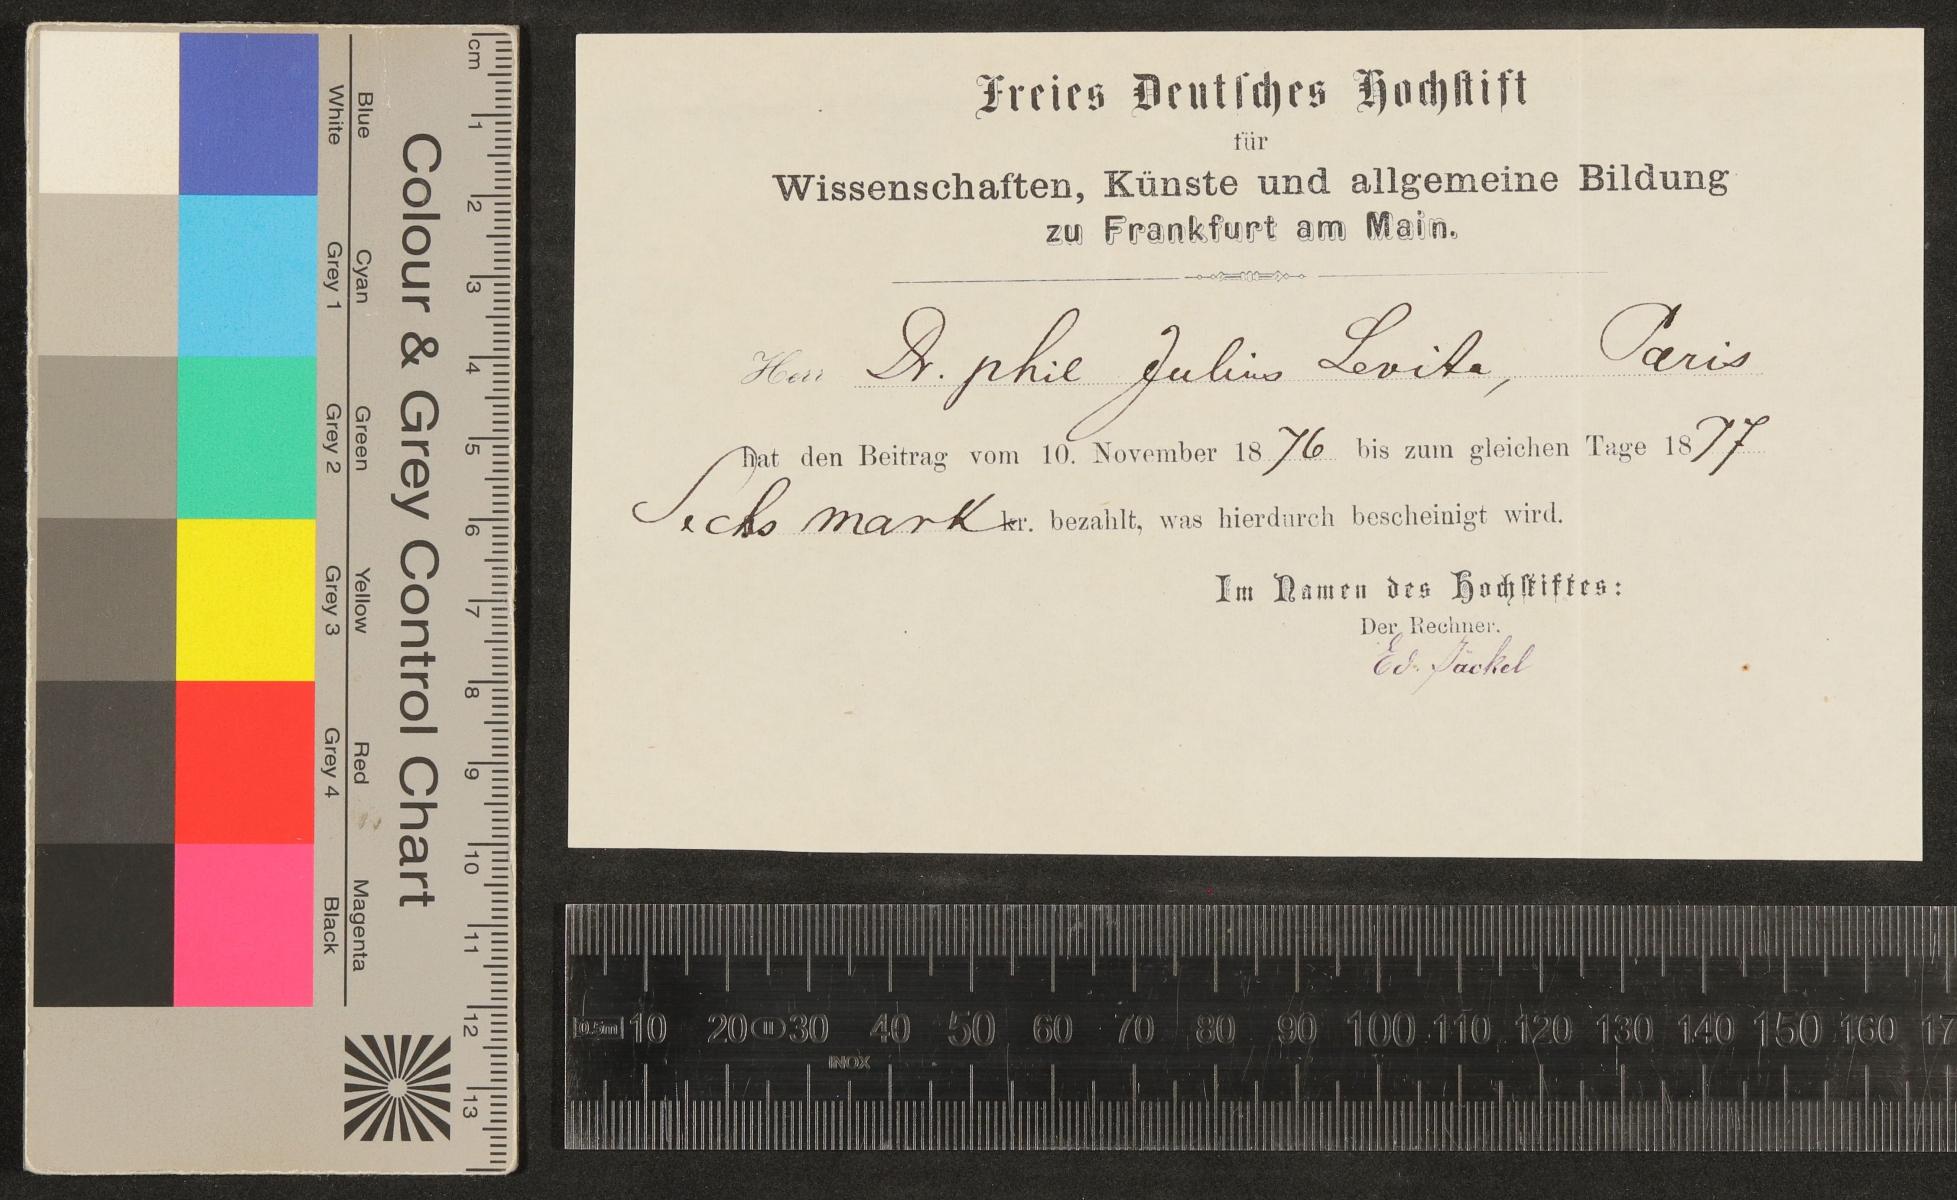 Freies Deutsches Hochstift
für
Wissenschaften, Künste und allgemeine Bildung
zu Frankfurt am Main.
Herr Dr. phil Julius Levita, Paris
hat den Beitrag vom 10. November 1876 bis zum gleichen Tage 1877
Sechs mark kr. bezahlt, was hierdurch bescheinigt wird.
Im Namen des Hochstiftes:
Der Rechner.
Ed. Jäckel
Colour & Grey Control Chart
Blue Cyan Green Yellow Red Magenta
White Grey 1 Grey 2 Grey 3 Grey 4 Black
cm 1 2 3 4 5 6 7 8 9 10 11 12 13
0.5m 10 20 II 30 40 50 60 70 80 90 100 110 120 130 140 150 160 17
INOX